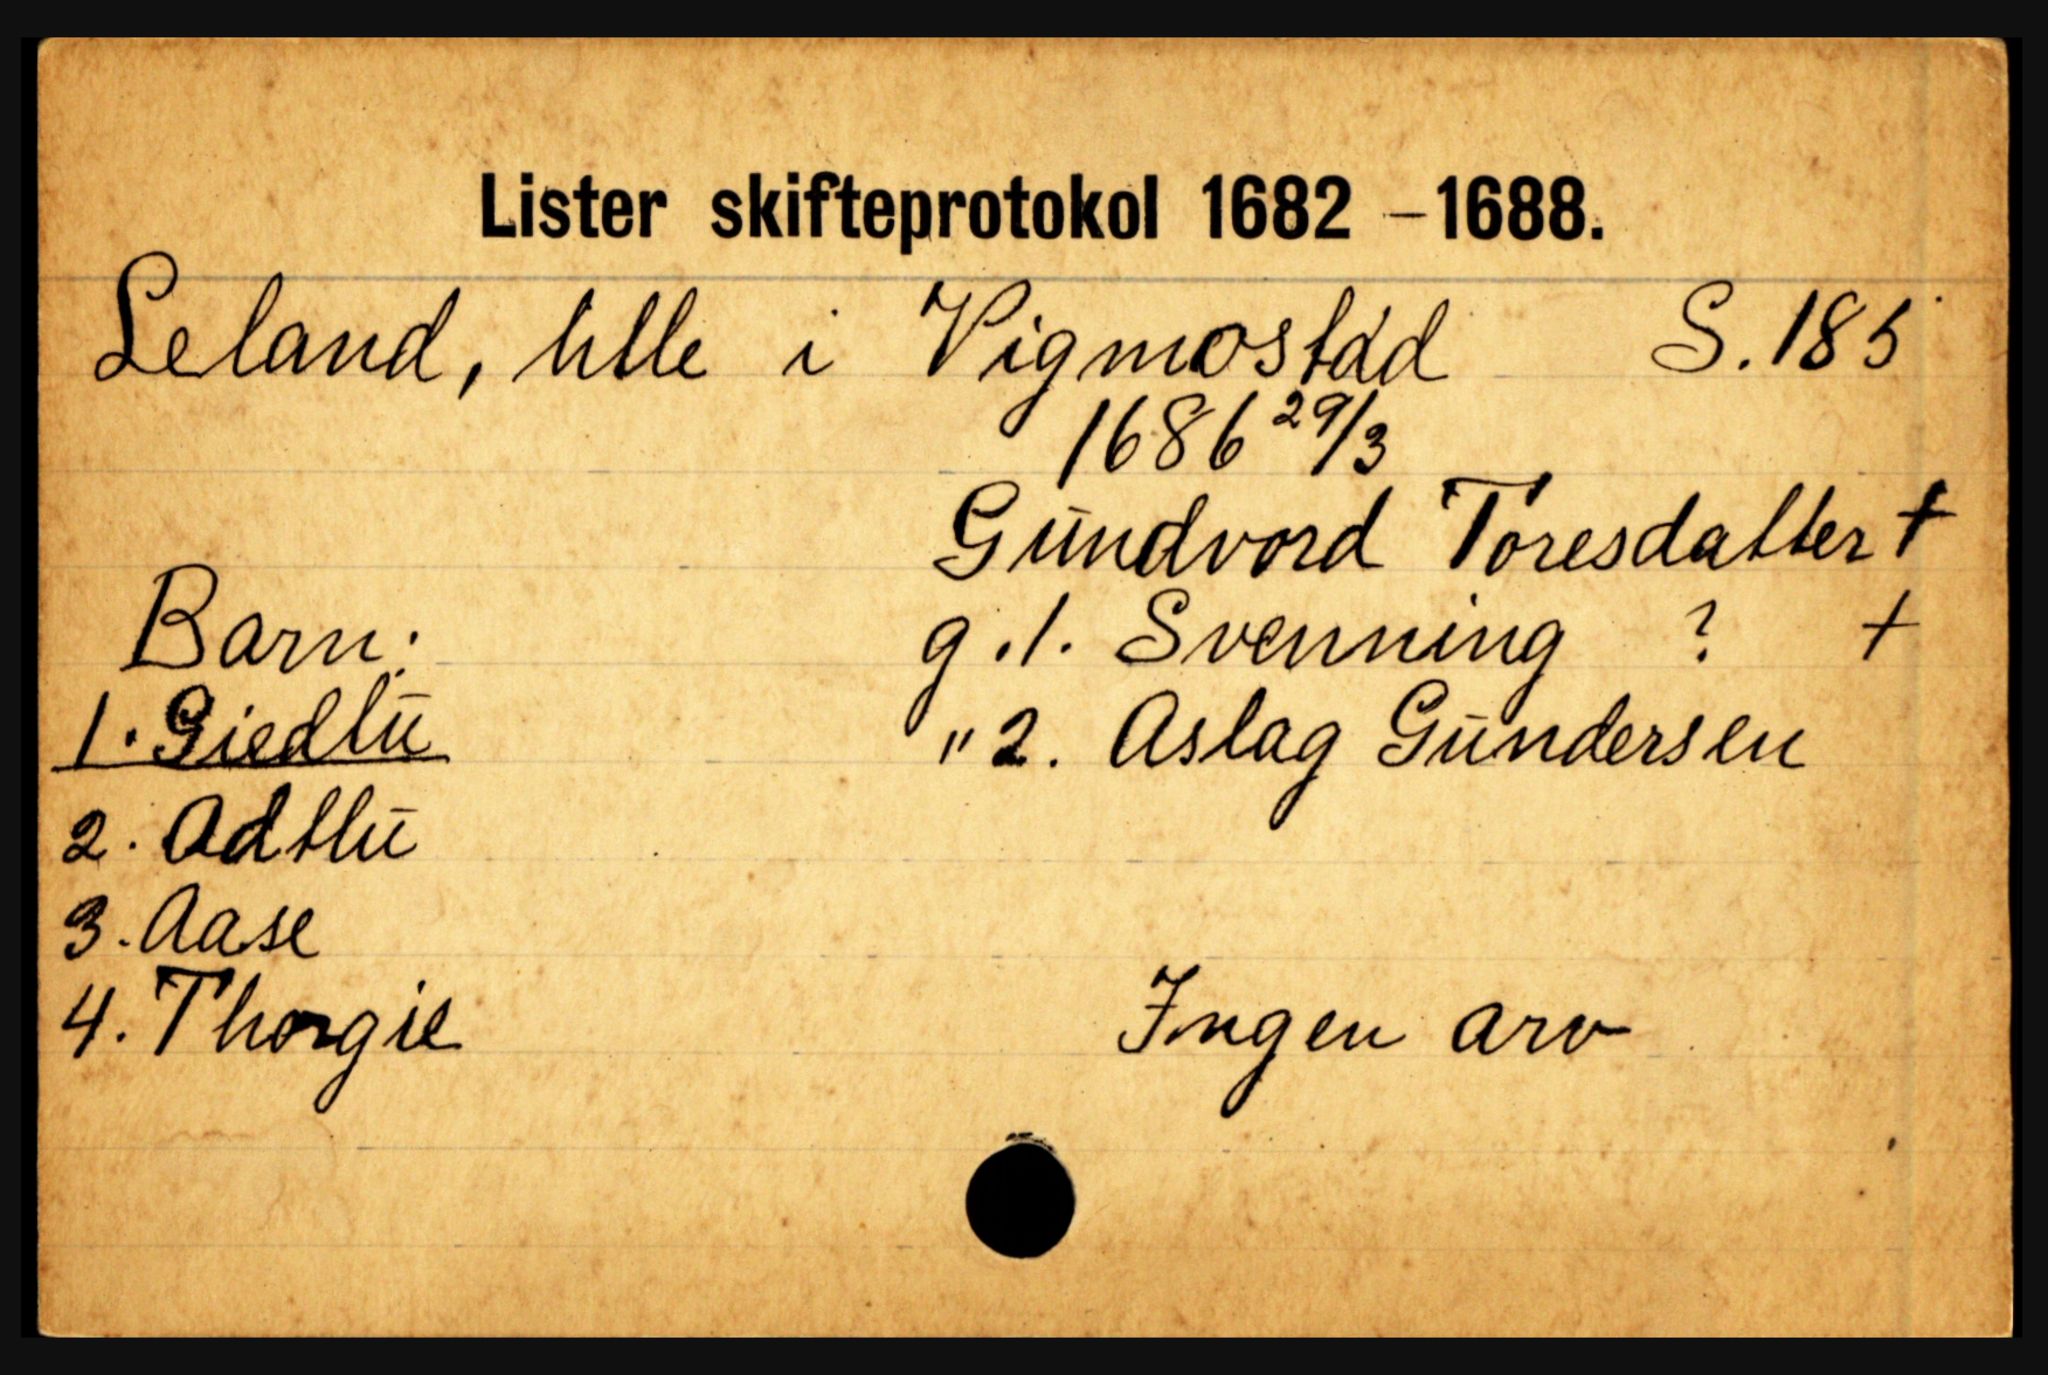 Lister skifteprotokol 1682 – 1688.
Leland, lille i Vigmostad S. 185
1686 29/3
Gundvord Toresdatter †
Barn: g. 1. Svenning ? †
1. Giedlu " 2. Aslag Gundersen
2. Adtlu
3. Aase
4. Thorgie Ingen arv